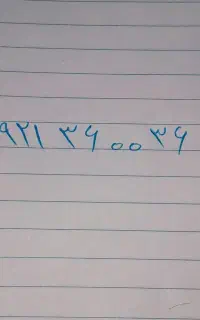 ۹۲۱ ۳۶ ۰۰ ۳۶